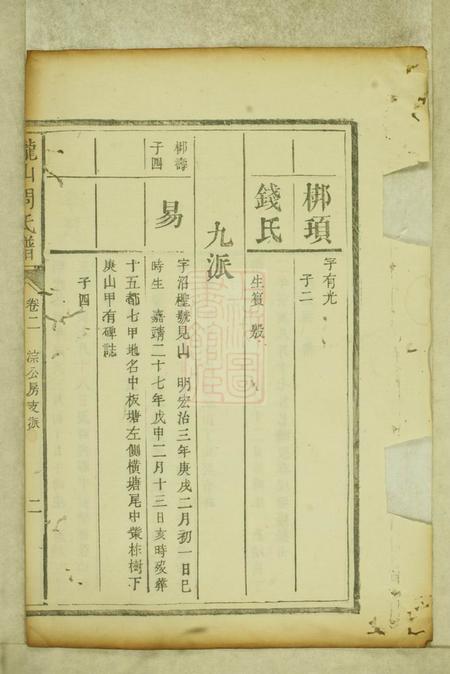 梆瑣
字有光
子二
錢氏
生賓 殷
九派
梆壽子四
易
字沼檉號見山 明宏治三年庚戌二月初一日巳
時生 嘉靖二十七年戊申二月十三日亥時歿葬
十五都七甲地名中板塘左側橫塘尾中叢株樹下
庚山甲有碑誌
子四
瀧山周氏譜
卷二
淙公房支派
二